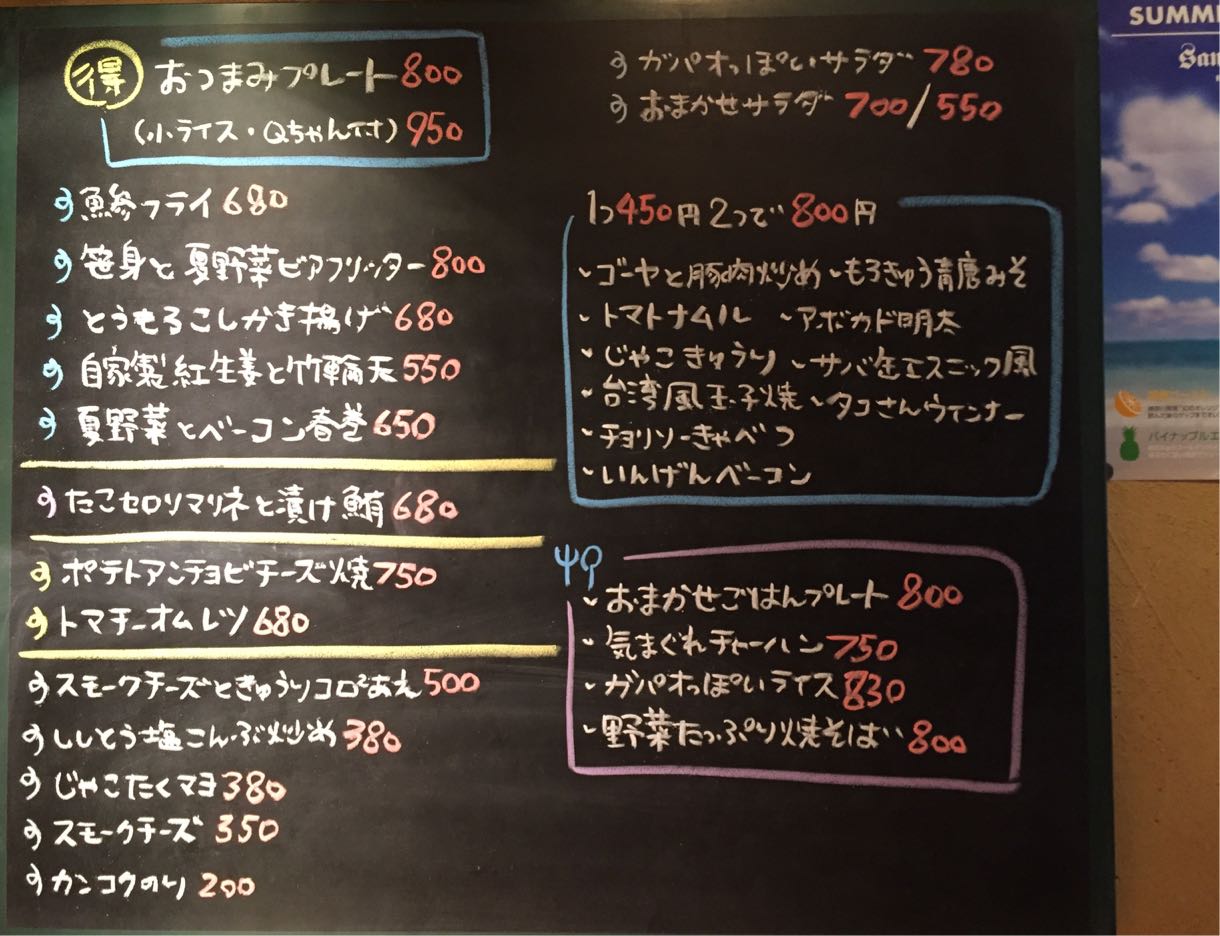 得 おつまみプレート 800
(小ライス・Qちゃん付) 950
鯵フライ 680
笹身と夏野菜ビアフリッター 800
とうもろこしかき揚げ 680
自家製紅生姜と竹輪天 550
夏野菜とベーコン春巻 650
たこセロリマリネと漬け鮪 680
ポテトアンチョビチーズ焼 750
トマチーオムレツ 680
スモークチーズときゅうりコロコロあえ 500
ししとう塩こんぶ炒め 380
じゃこたくマヨ 380
スモークチーズ 350
カンコクのり 200
ガパオっぽいサラダ 780
おまかせサラダ 700/550
1つ450円 2つで800円
・ゴーヤと豚肉炒め ・もろきゅう青唐みそ
・トマトナムル ・アボカド明太
・じゃこきゅうり ・サバ缶エスニック風
・台湾風玉子焼 ・タコさんウインナー
・チョリソーきゃべつ
・いんげんベーコン
・おまかせごはんプレート 800
・気まぐれチャーハン 750
・ガパオっぽいライス 830
・野菜たっぷり焼そば 800
SUMM
San
パイナップルエ